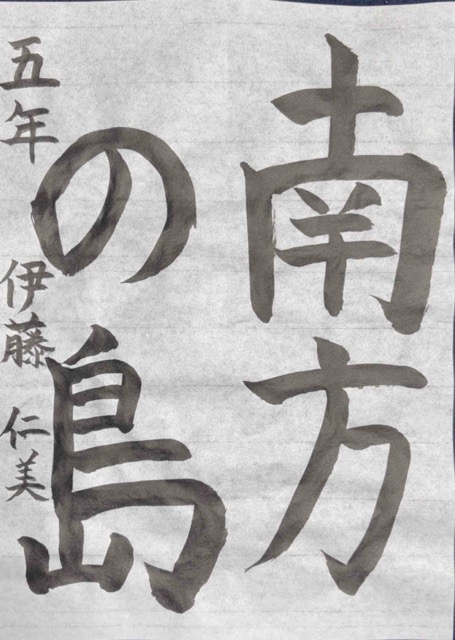 南方
の島
五年 伊藤 仁美